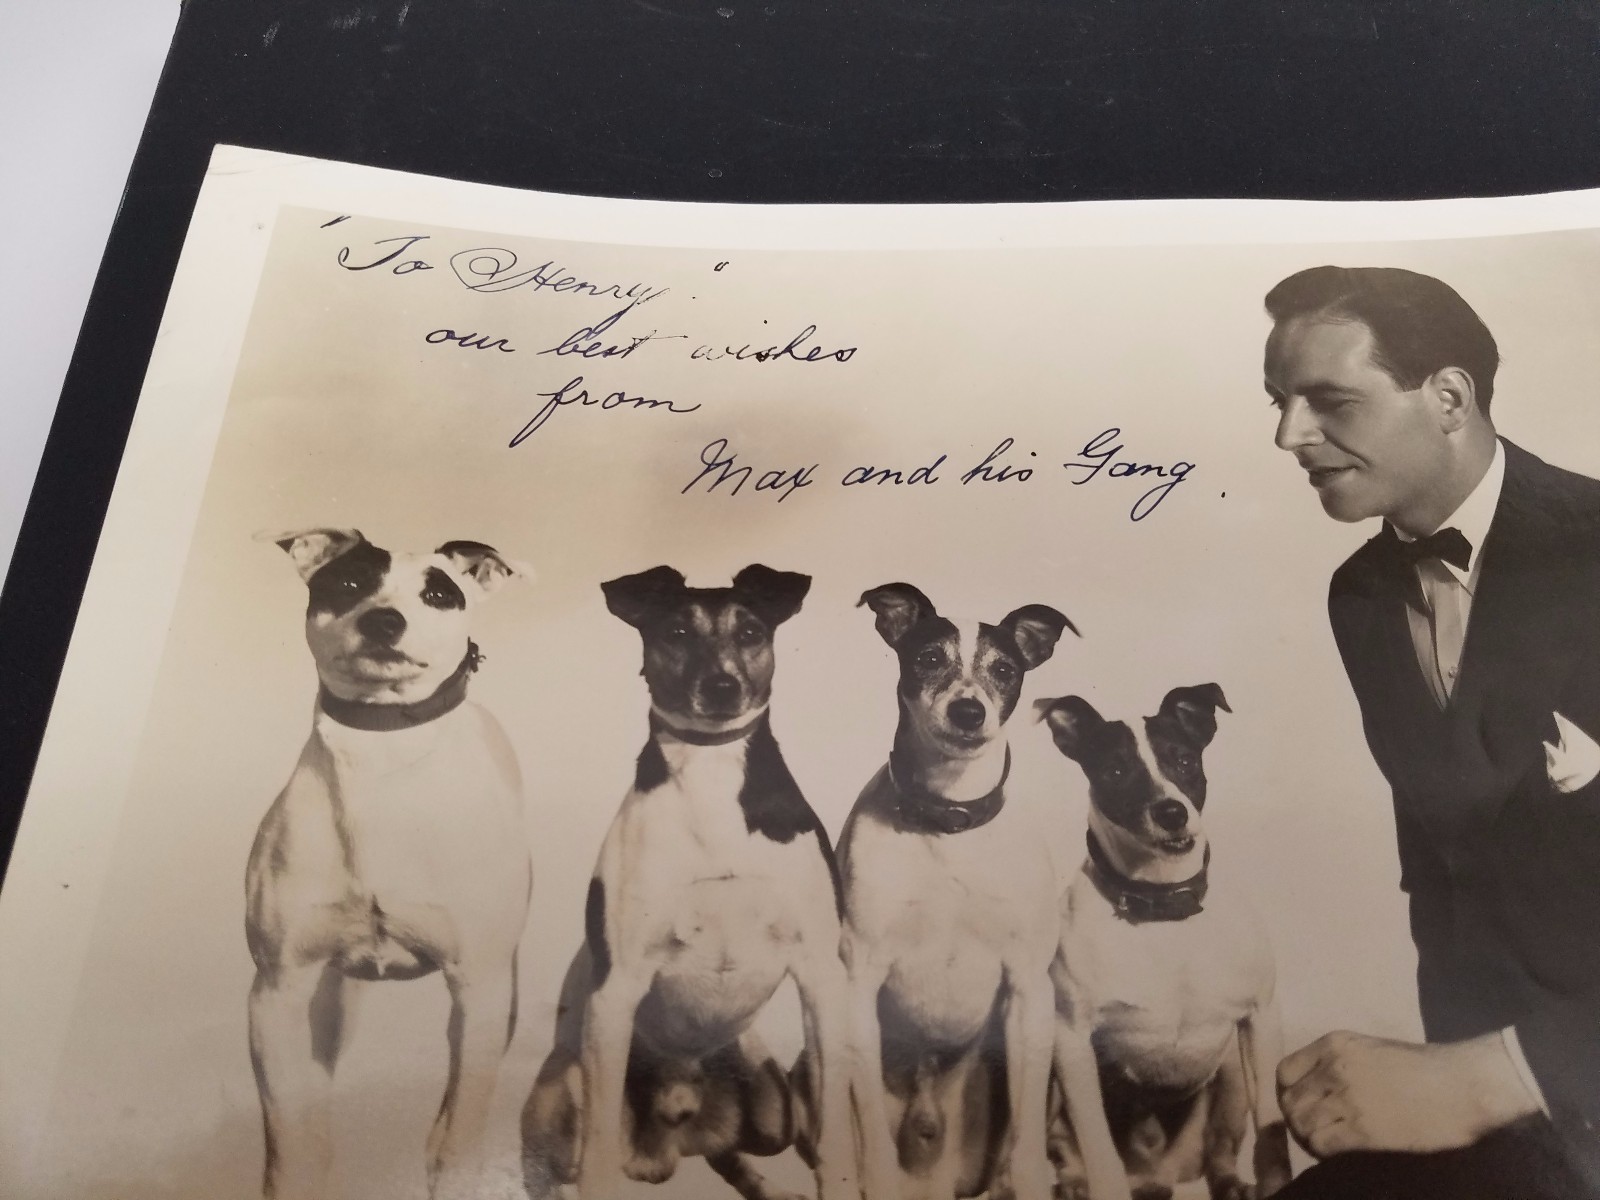 "To Henry."
our best wishes
from
Max and his Gang.